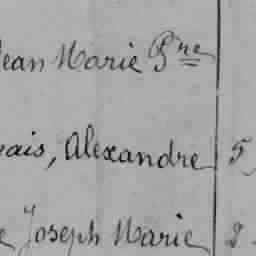 Jean Marie Pre
ais, Alexandre 5
e Joseph Marie 2